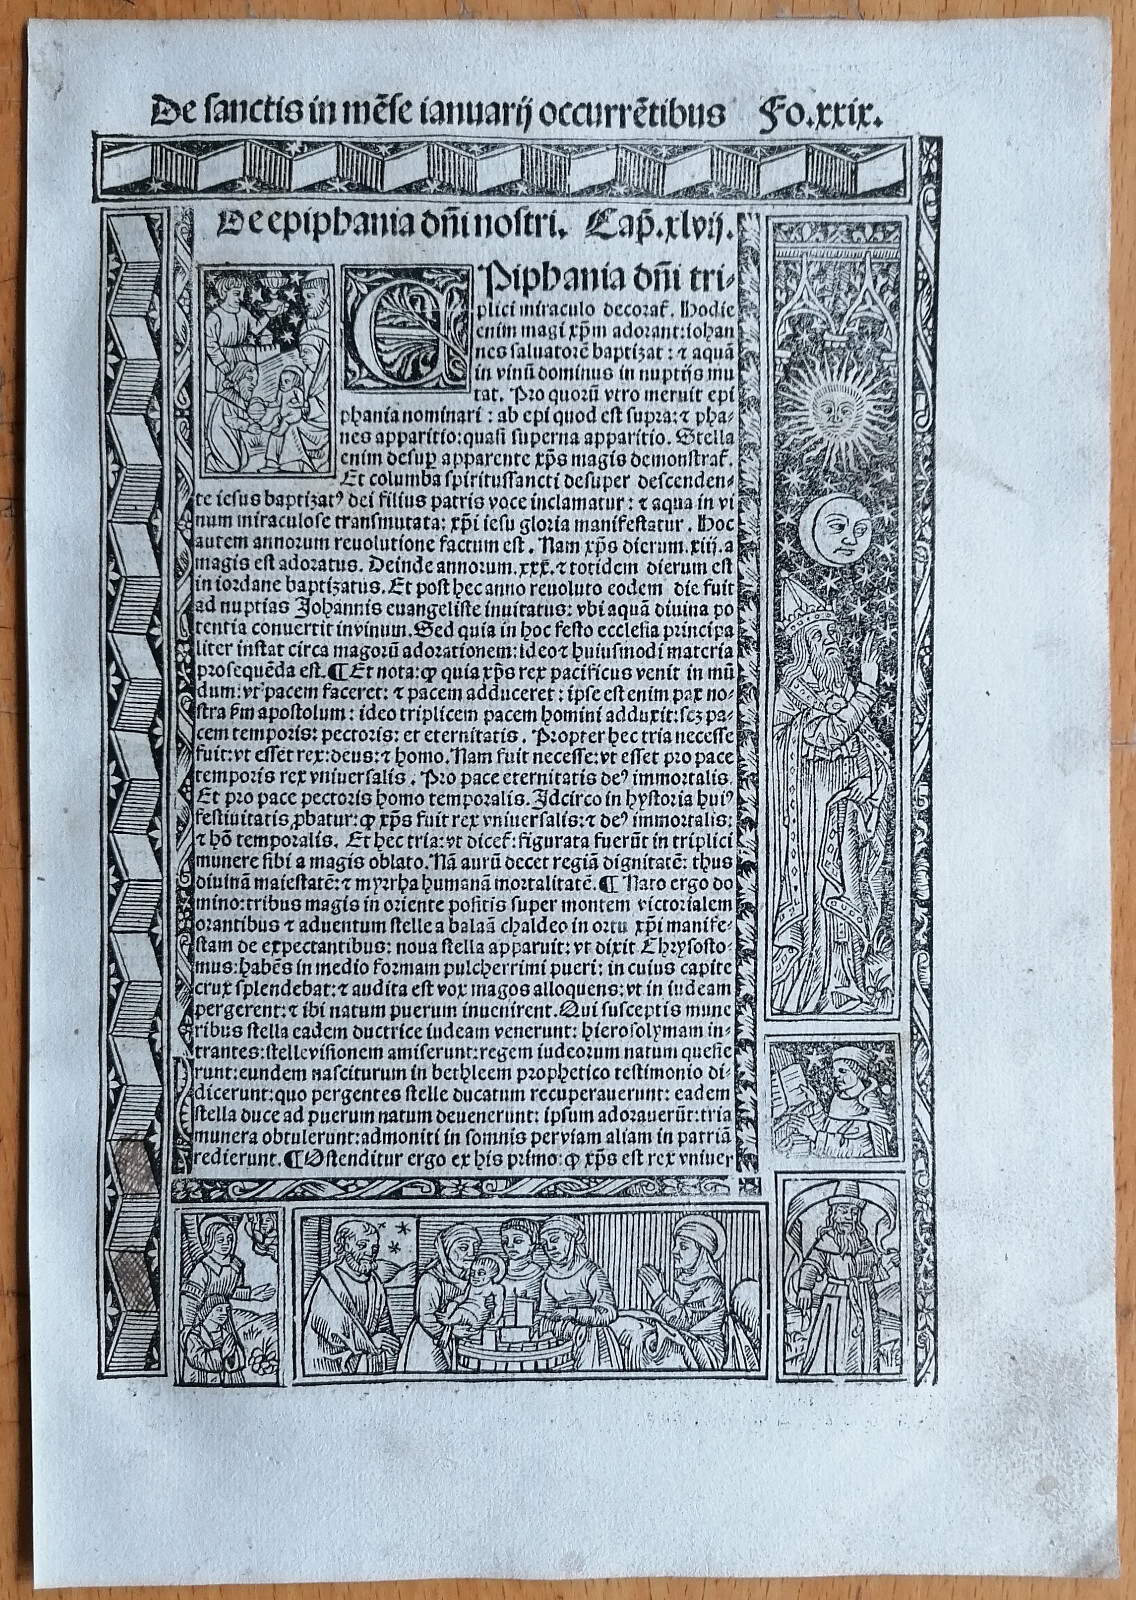 De sanctis in mēse ianuarij occurrētibus Fo.xxix.
De epiphania dn̄i nostri. Cap̄.xlvij.
EPiphania dn̄i tri-
plici miraculo decorat᷑. Hodie
enim magi xp̄m adorant:iohan
nes saluatorē baptizat : ⁊ aquā
in vinū dominus in nuptijs mu
tat. Pro quorū vtro meruit epi
phania nominari : ab epi quod est supra:⁊ pha-
nes apparitio:quasi superna apparitio. Stella
enim desuꝑ apparente xp̄s magis demonstrat᷑.
Et columba spiritussancti desuper descenden-
te iesus baptizatꝰ dei filius patris voce inclamatur : ⁊ aqua in vi
num miraculose transmutata: xp̄i iesu gloria manifestatur . Hoc
autem annorum reuolutione factum est . Nam xp̄s dierum.xiij.a
magis est adoratus. Deinde annorum.xxx.⁊ totidem dierum est
in iordane baptizatus. Et post hec anno reuoluto eodem die fuit
ad nuptias Johannis euangeliste inuitatus: vbi aquā diuina po
tentia conuertit in vinum. Sed quia in hoc festo ecclesia principa
liter instat circa magorū adorationem: ideo ⁊ huiusmodi materia
prosequēda est. ¶ Et nota: ꝙ quia xp̄s rex pacificus venit in mū
dum: vt pacem faceret: ⁊ pacem adduceret : ipse est enim pax no-
stra ẜm apostolum : ideo triplicem pacem homini adduxit:scꝫ pa-
cem temporis: pectoris: et eternitatis . Propter hec tria necesse
fuit: vt esset rex: deus: ⁊ homo. Nam fuit necesse: vt esset pro pace
temporis rex vniuersalis . Pro pace eternitatis deꝰ immortalis.
Et pro pace pectoris homo temporalis. Idcirco in hystoria huiꝰ
festiuitatis ꝓbatur: ꝙ xp̄s fuit rex vniuersalis: ⁊ deꝰ immortalis;
⁊ hō temporalis. Et hec tria: vt dicet᷑: figurata fuerūt in triplici
munere sibi a magis oblato. Nā aurū decet regiā dignitatē: thus
diuinā maiestatē: ⁊ myrrha humanā mortalitatē. ¶ Nato ergo do
mino: tribus magis in oriente positis super montem victorialem
orantibus ⁊ aduentum stelle a balaā chaldeo in ortu xp̄i manife-
stam de expectantibus: noua stella apparuit: vt dixit Chrysosto-
mus: habēs in medio formam pulcherrimi pueri: in cuius capite
crux splendebat: ⁊ audita est vox magos alloquens: vt in iudeam
pergerent: ⁊ ibi natum puerum inuenirent. Qui susceptis mune
ribus stella eadem ductrice iudeam venerunt: hierosolymam in-
trantes: stelle visionem amiserunt: regem iudeorum natum quesie
runt: eundem nasciturum in bethleem prophetico testimonio di-
dicerunt: quo pergentes stelle ducatum recuperauerunt: eadem
stella duce ad puerum natum deuenerunt: ipsum adorauerūt: tria
munera obtulerunt: admoniti in somnis per viam aliam in patriā
redierunt. ¶ Ostenditur ergo ex his primo: ꝙ xp̄s est rex vniuer